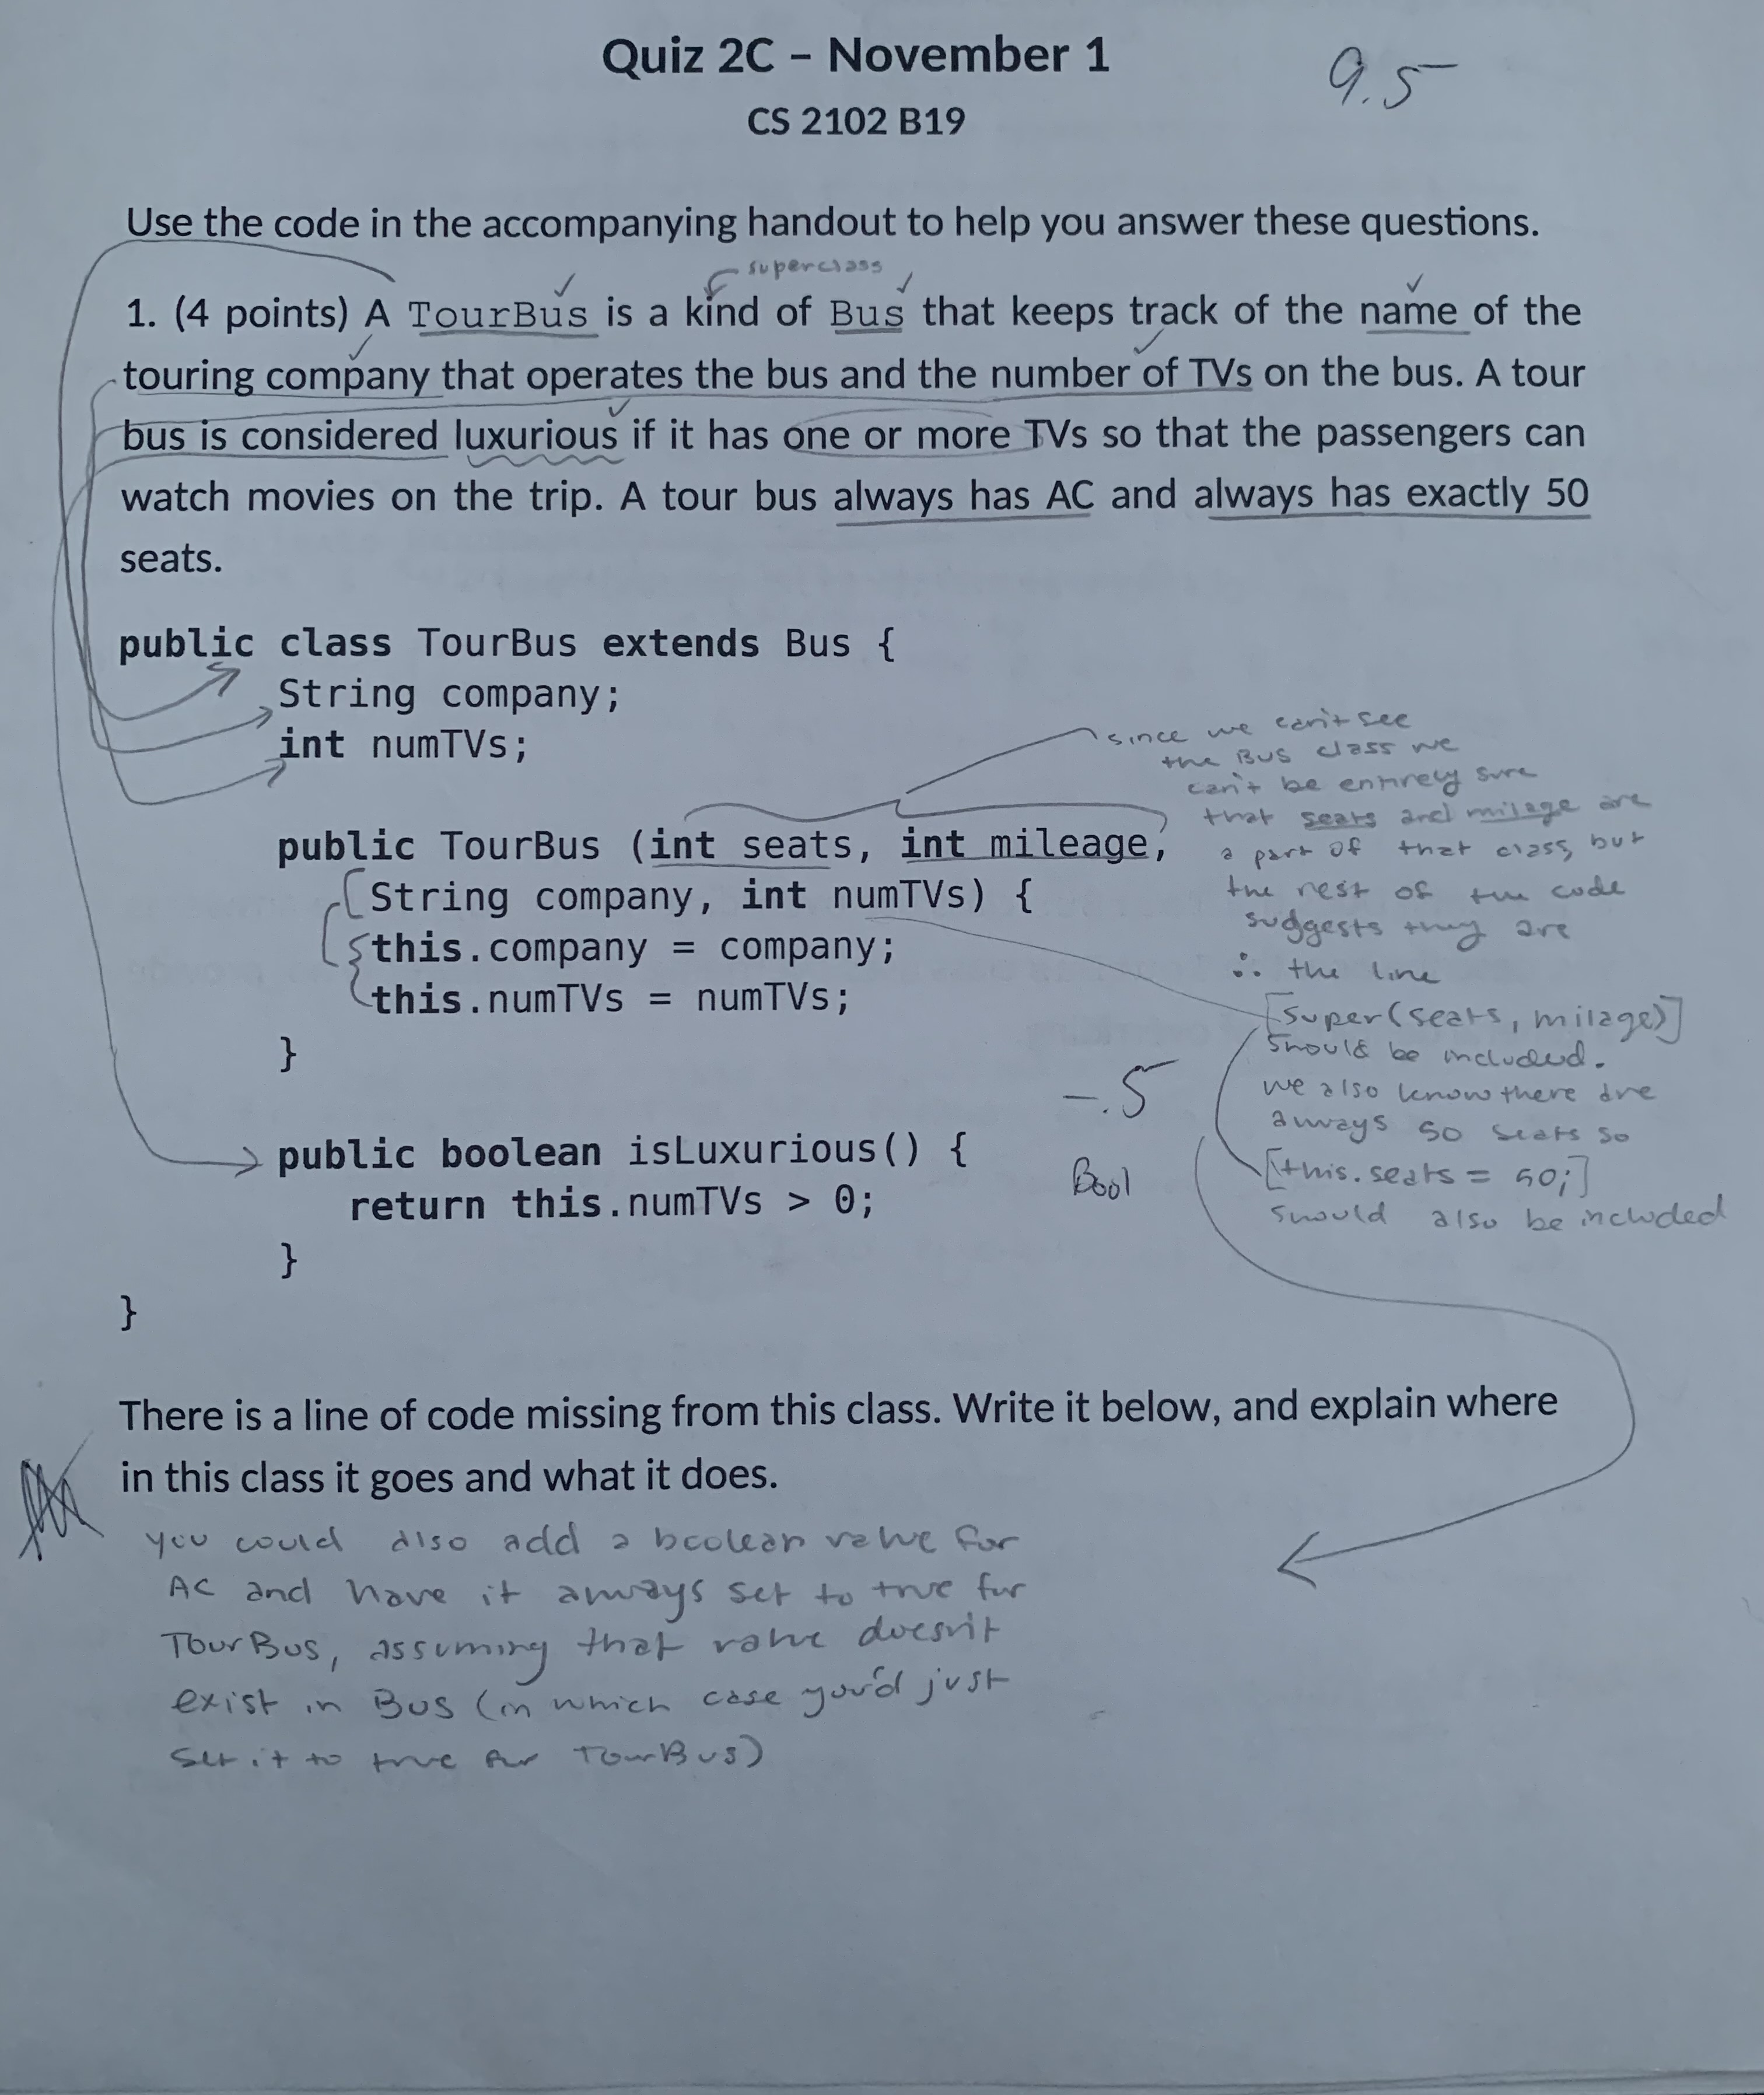 Quiz 2C – November 1
9.5
CS 2102 B19
Use the code in the accompanying handout to help you answer these questions.
superclass
1. (4 points) A TourBus is a kind of Bus that keeps track of the name of the
touring company that operates the bus and the number of TVs on the bus. A tour
bus is considered luxurious if it has one or more TVs so that the passengers can
watch movies on the trip. A tour bus always has AC and always has exactly 50
seats.
public class TourBus extends Bus {
String company;
int numTVs;
public TourBus (int seats, int mileage,
String company, int numTVs) {
this.company = company;
this.numTVs = numTVs;
}
public boolean isLuxurious() {
return this.numTVs > 0;
}
}
since we can't see
the Bus class we
can't be entirely sure
that seats and milage are
a part of that class, but
the rest of the code
suggests they are
∴ the line
[super(seats, milage)]
should be included.
we also know there are
always 50 seats so
[this.seats = 50;]
should also be included
-.5
Bool
There is a line of code missing from this class. Write it below, and explain where
in this class it goes and what it does.
you could also add a boolean value for
AC and have it always set to true for
TourBus, assuming that value doesn't
exist in Bus (in which case you'd just
set it to true for TourBus)